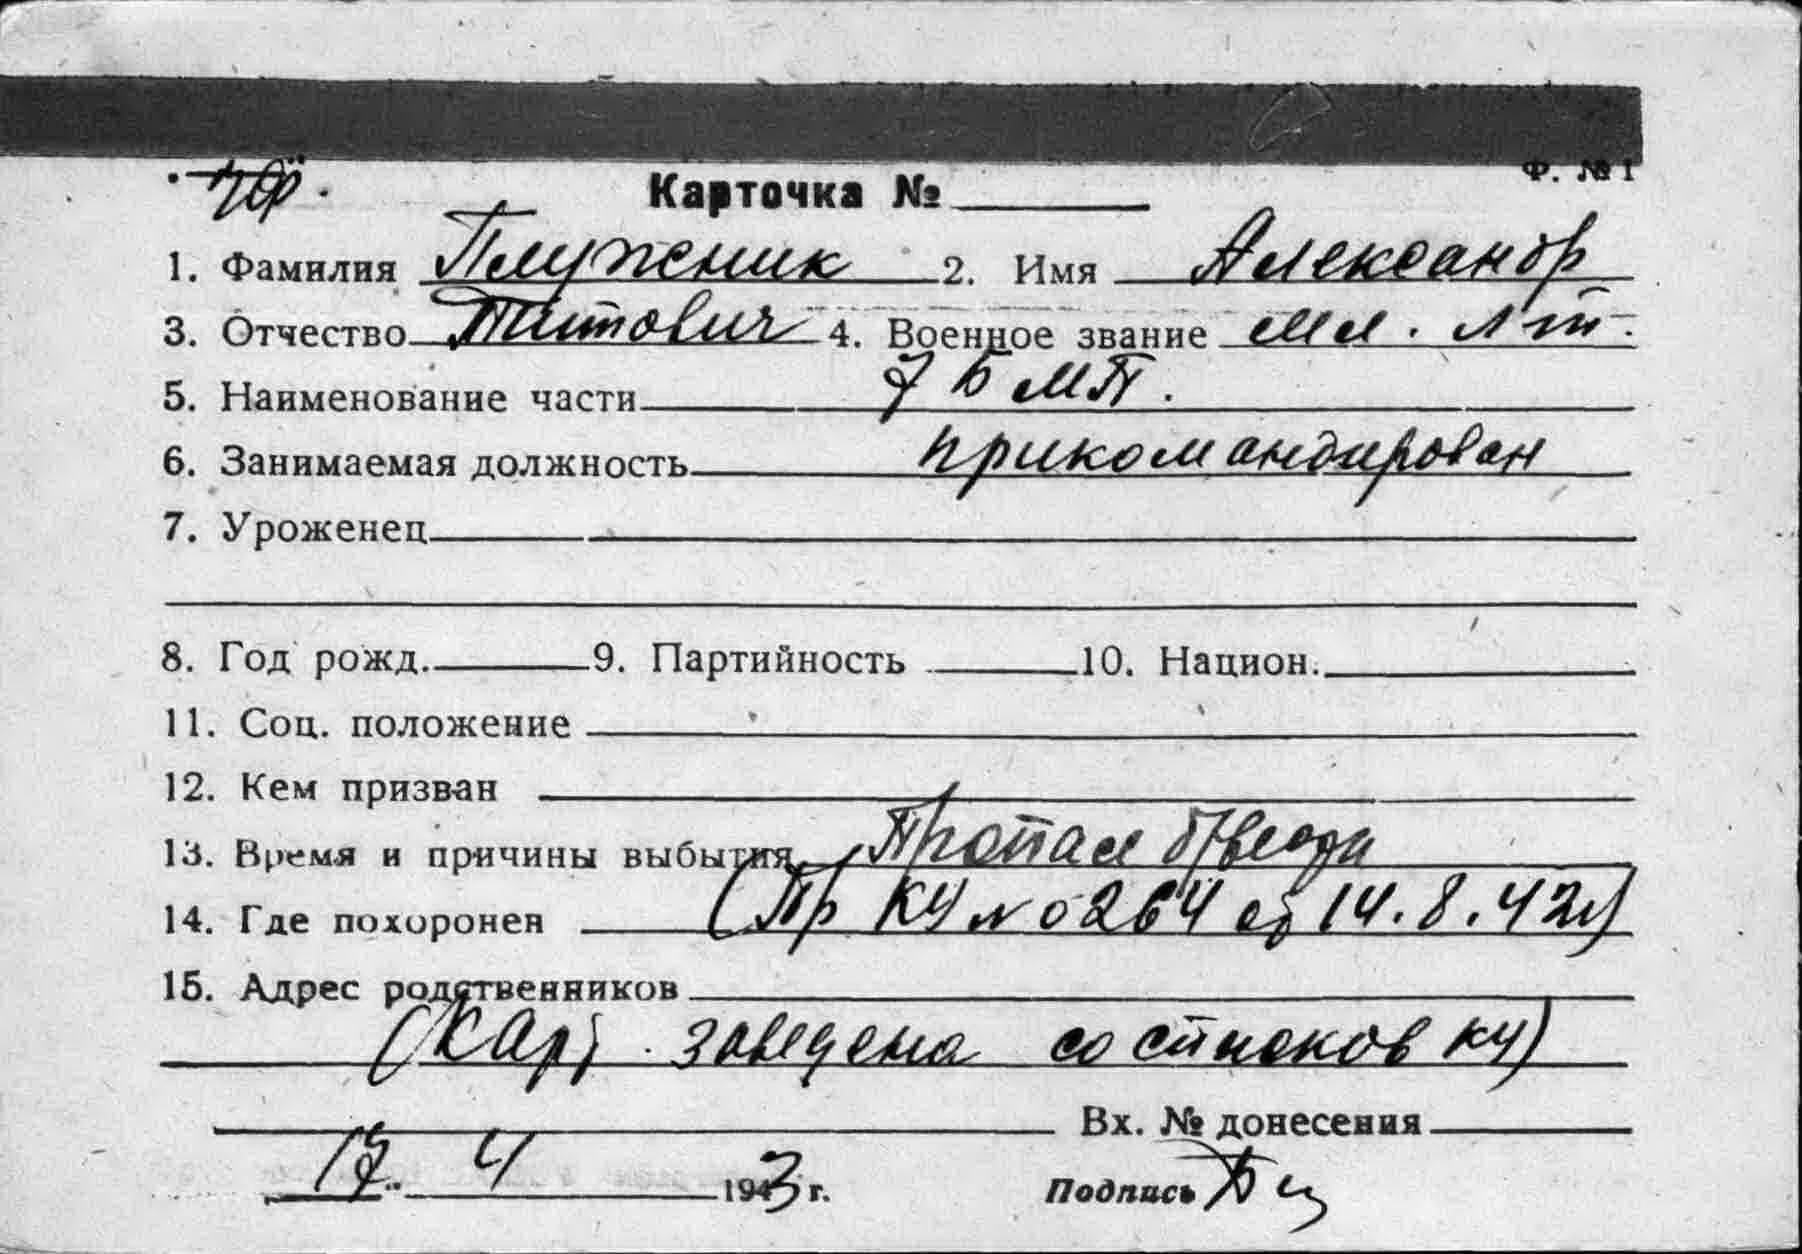 Ф. № 1
Карточка №
1. Фамилия Плужник 2. Имя Александр
3. Отчество Титович 4. Военное звание мл. л-т.
5. Наименование части 7 БМП.
6. Занимаемая должность прикомандирован
7. Уроженец
8. Год рожд. 9. Партийность 10. Национ.
11. Соц. положение
12. Кем призван
13. Время и причины выбытия Пропал б/вести
14. Где похоронен (Пр КУ № 0264 от 14.8.42г)
15. Адрес родственников
(Карт. заведена со списков КУ)
Вх. № донесения
17 " 4 1943 г. Подпись